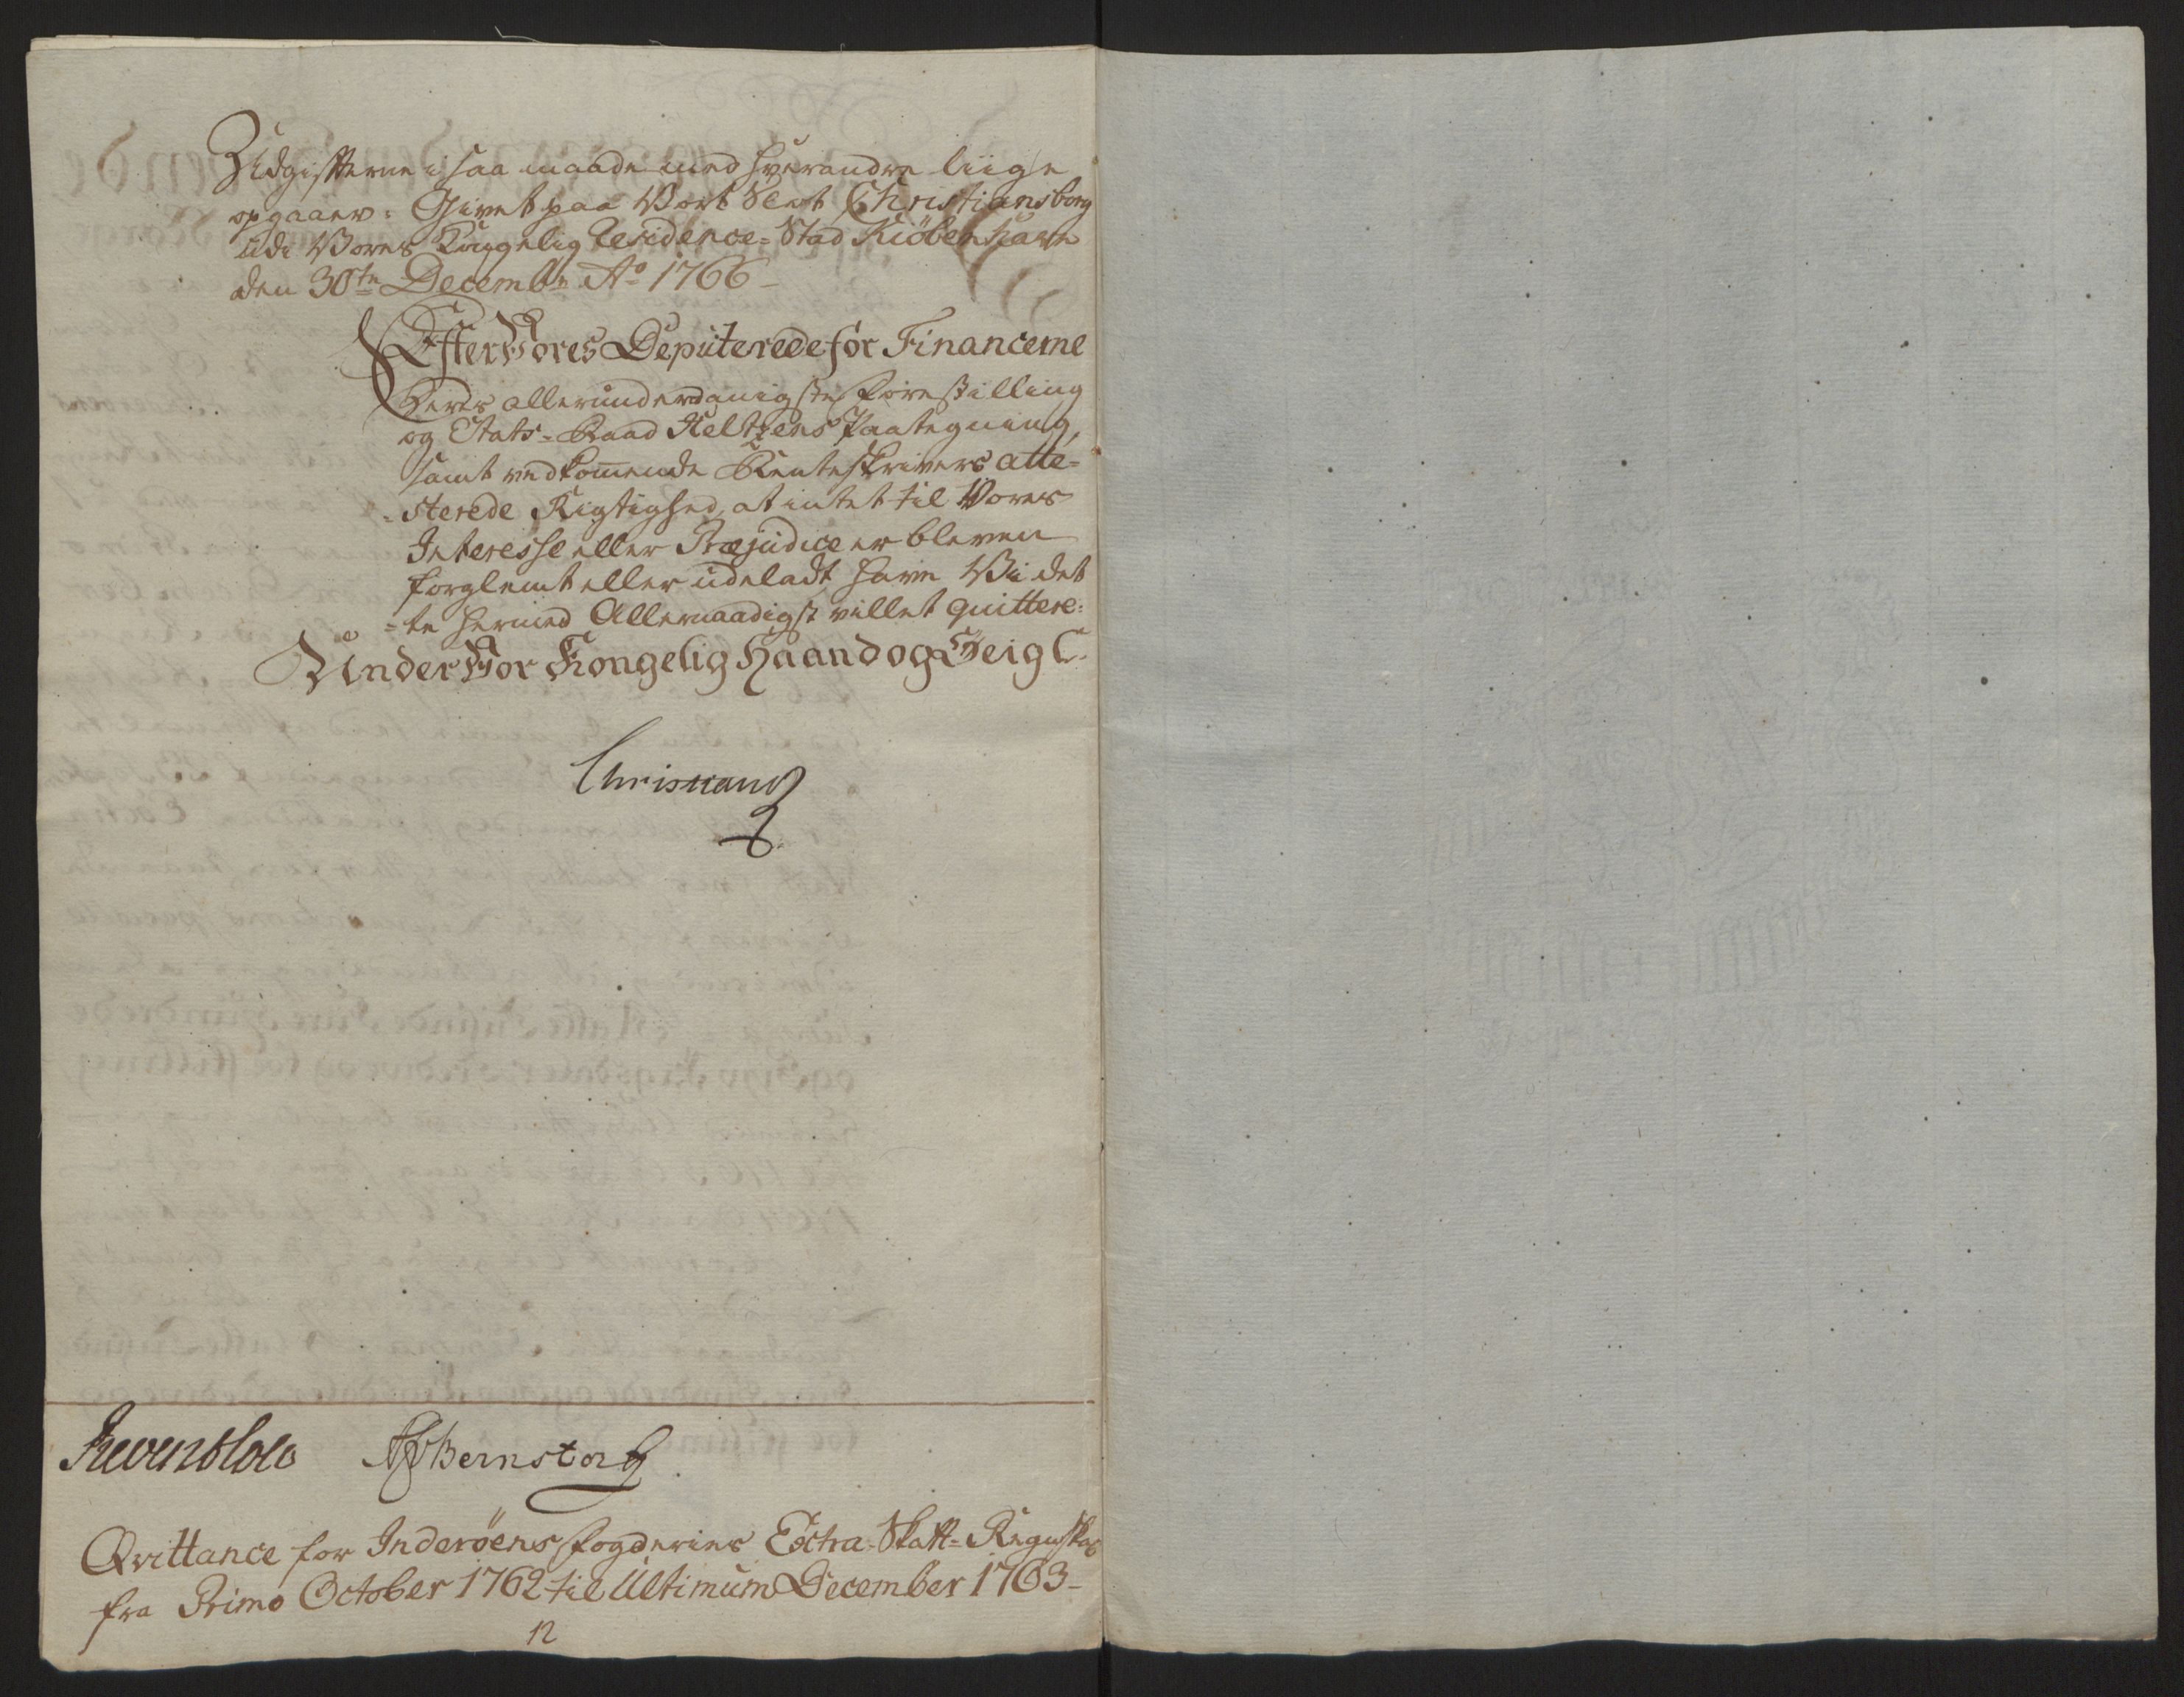 Udgifterne i saa maade med hverandre liige
opgaaer. Givet paa Vort Slot Christiansborg
udi Vores Kongelig Residence-Stad Kiöbenhavn
den 30te Decembr Ao 1766
Efter Vores Deputerede for Financerne
Deres allerunderdanigste forestilling
og Etats-Raad Heltzens Paategning,
samt vedkommende Renteskrivers atte-
-sterede Rigtighed, at intet til Vores
Interesse eller Præjudice er bleven
forglemt eller udeladt, have Vi det
-te hermed Allernaadigst villet quittere:
Under Vor Kongelig Haand og Seigl.
Christian
Reventlow AGBernstorff
Qvittance for Inderöens fogderies Extra-Skatt-Regnskab
fra Primo October 1762 til Ultimum December 1763
12